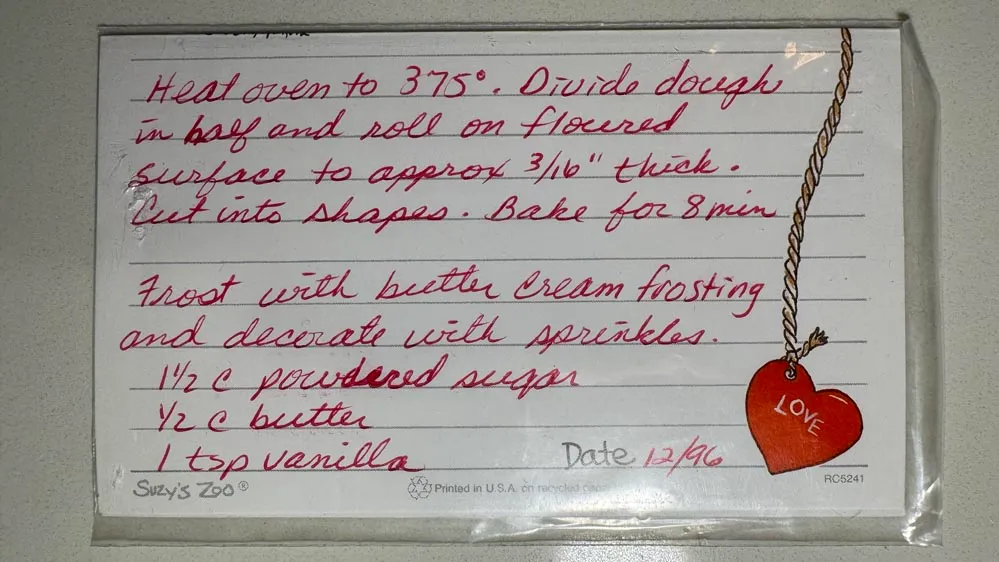 Heat oven to 375°. Divide dough
in half and roll on floured
surface to approx 3/16" thick.
Cut into shapes. Bake for 8 min
Frost with butter cream frosting
and decorate with sprinkles.
1 1/2 c powdered sugar
1/2 c butter
1 tsp vanilla
LOVE
Date 12/96
Suzy's Zoo®
Printed in U.S.A. on recycled paper
RC5241